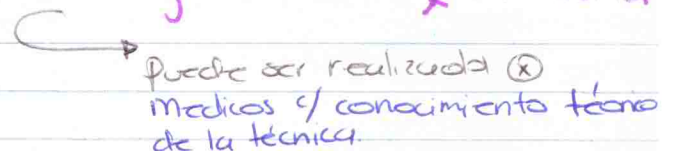 puede ser realizada ⓧ
medicos c/ conocimiento técnico
de la técnica.